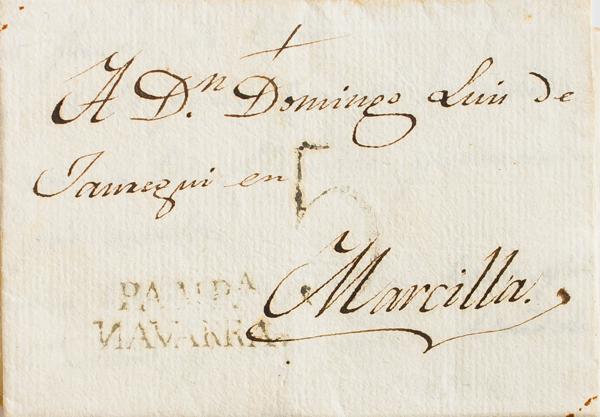 A D.n Domingo Luis de
Jauregui en
5
Marcilla.
PAMPA
NAVARRA